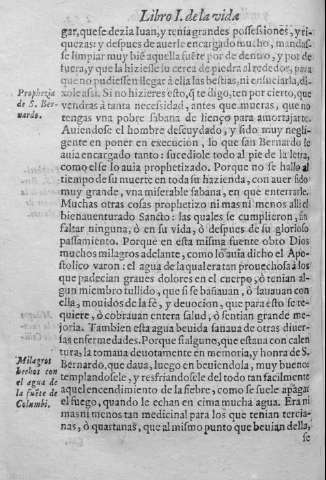 Libro I. de la vida
gar, que se dezia Iuan, y tenia grandes possessiones, y ri-
quezas: y despues de auerle encargado mucho, mandas-
se limpiar muy biẽ aquella fuẽte por de dentro, y por de
fuera, y que la hiziesse su cerca de piedra al rededor, para
que no pudiessen llegar à ella las bestias, ni ensuciarla, di-
xole assi. Si no hizieres esto, q̃ te digo, ten por cierto, que
vendras à tanta necessidad, antes que mueras, que no
tengas vna pobre sabana de lienço para amortajarte.
Auiendose el hombre descuydado, y sido muy negli-
gente en poner en execucion, lo que san Bernardo le
auia encargado tanto: sucediole todo al pie de la letra,
como el se lo auia prophetizado. Porque no se hallo al
tiempo de su muerte en toda su hazienda, con auer sido
muy grande, vna miserable sabana, en que enterrarle.
Muchas otras cosas prophetizo ni mas ni menos alli el
bienauenturado Sancto: las quales se cumplieron, sin
faltar ninguna, ò en su vida, ò despues de su glorioso
passamiento. Porque en esta misma fuente obro Dios
muchos milagros adelante, como lo auia dicho el Apo-
stolico varon: el agua de la qual eratan prouechosa à los
que padecian graues dolores en el cuerpo, ò tenian al-
gun miembro tullido, que si se bañauan, ò lauauan con
ella, mouidos de la fè, y deuocion, que para esto se re-
quiere, ò cobrauan entera salud, ò sentian grande me-
joria. Tambien esta agua beuida sanaua de otras diuer-
sas enfermedades. Porque si alguno, que estaua con calen
tura, la tomaua deuotamente en memoria, y honra de S.
Bernardo, que daua, luego en beuiendola, muy bueno:
templandosele, y resfriandosele del todo tan facilmente
aquel encendimiento de la fiebre, como se suele apagar
el fuego, quando le echan en cima mucha agua. Era ni
mas ni menos tan medicinal para los que tenian tercia-
nas, ò quartanas, que al mismo punto que beuian della,
se
Prophezia
de S. Ber-
nardo.
Milagros
hechos con
el agua de
la fuẽte de
Columbi.